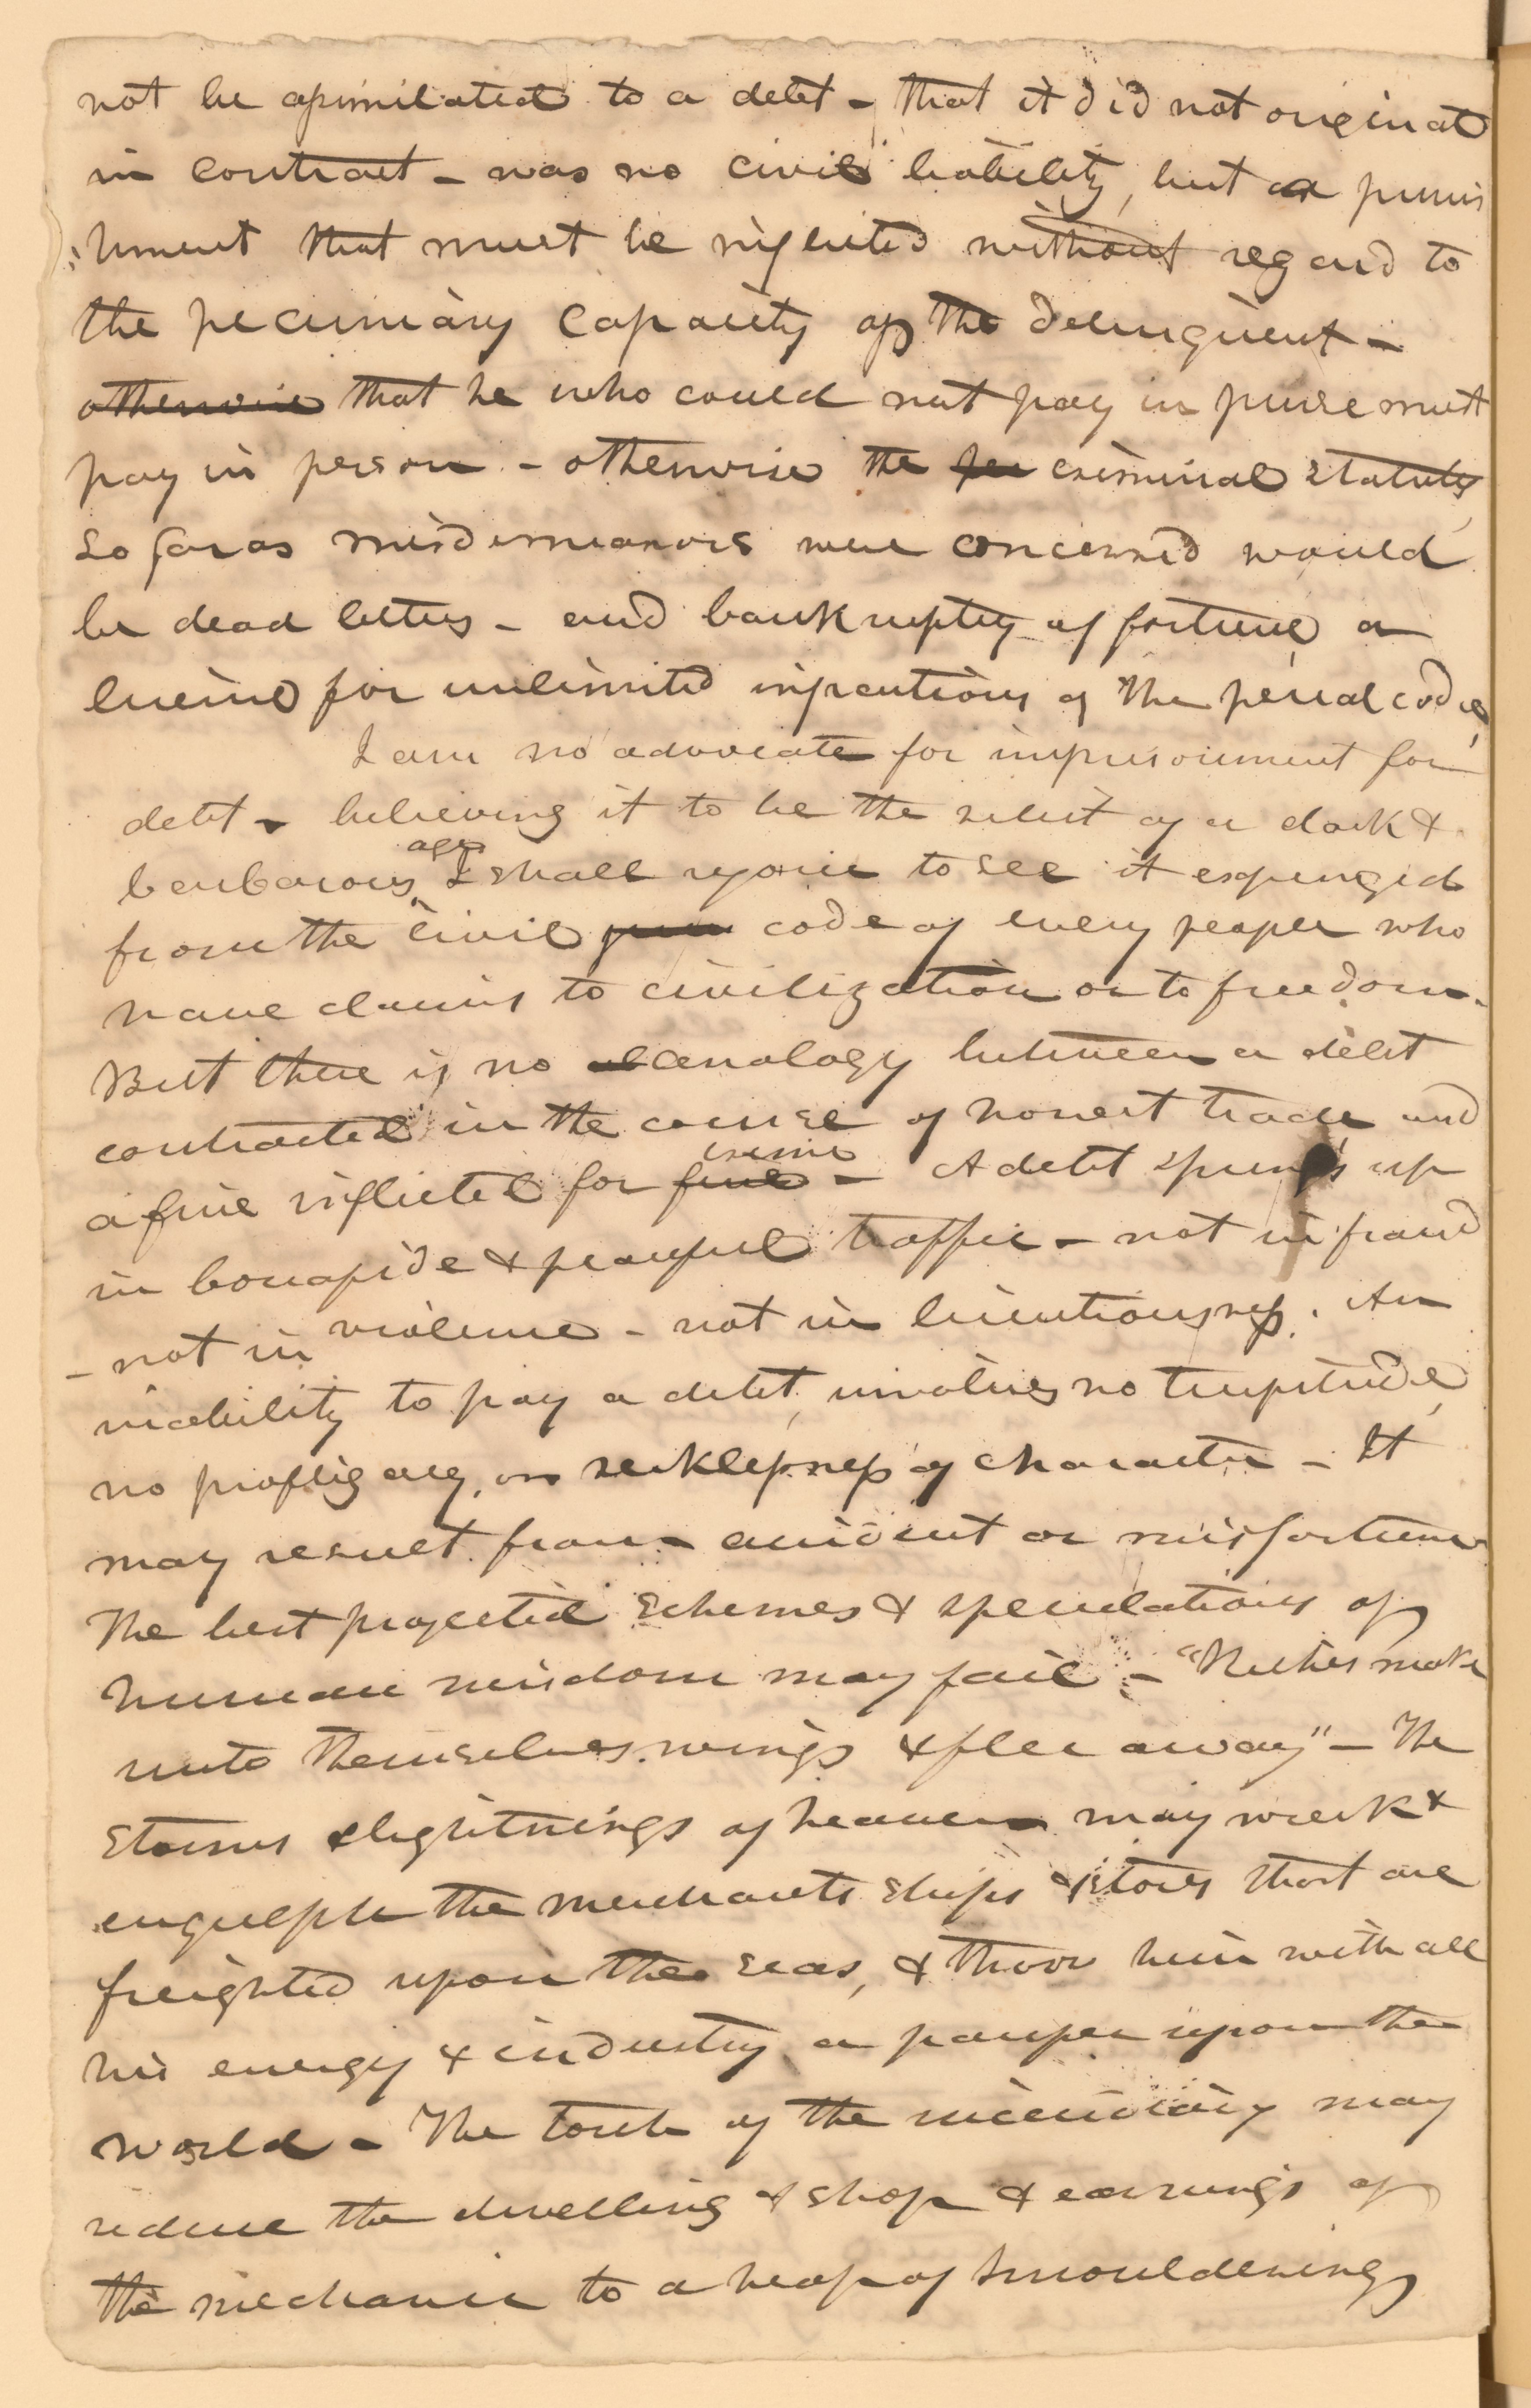 not be assimilated to a debt - that it did not originate
in contract - was no civil liability, but a punis
:hment that must be inflicted without regard to
the pecuniary capacity of the delinquent -
otherwise that he who could not pay in purse must
pay in person - otherwise the pen criminal statutes,
so far as misdemeanors were concerned would
be dead letters - and bankruptcy of fortune, a
license for unlimited infractions of the penal code,
I am no advocate for imprisonment for
debt - believing it to be the relict of a dark &
barbarous age I shall rejoice to see it expunged
from the civil code of every people who
have claims to civilization or to freedom.
But there is no analogy between a debt
contracted in the course of honest trade and
a fine inflicted for fine crime - A debt springs up
in bonafide & peaceful traffic - not in fraud
- not in violence - not in licentiousness. An
inability to pay a debt, involves no turpitude,
no profligacy, or recklessness of character - It
may result from accident or misfortune
The best projected schemes & speculations of
human wisdom may fail - "Riches make
unto themselves wings & flee away" - The
storms & lightnings of heaven may wreck &
engulph the merchants ships & stores that are
freighted upon the seas, & throw him with all
his energy & industry a pauper upon the
world - The torch of the incendiary may
reduce the dwelling & shop & earnings of
the mechanic to a heap of smouldering